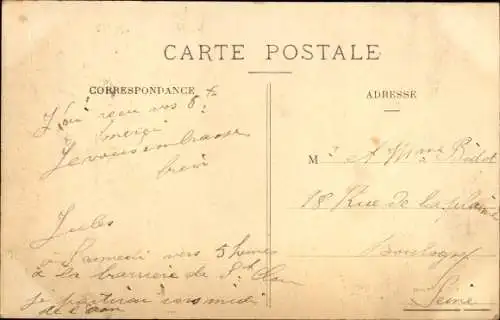 CARTE POSTALE
CORRESPONDANCE
ADRESSE
J'ai reçu vos 6 f
merci
Je vous embrasse
M r A Mme
18 Rue de la plaine
Boulogne
Seine
Jules
a Samedi vers 5 heures
a la barriere de St Clou
je partirai vers midi
de